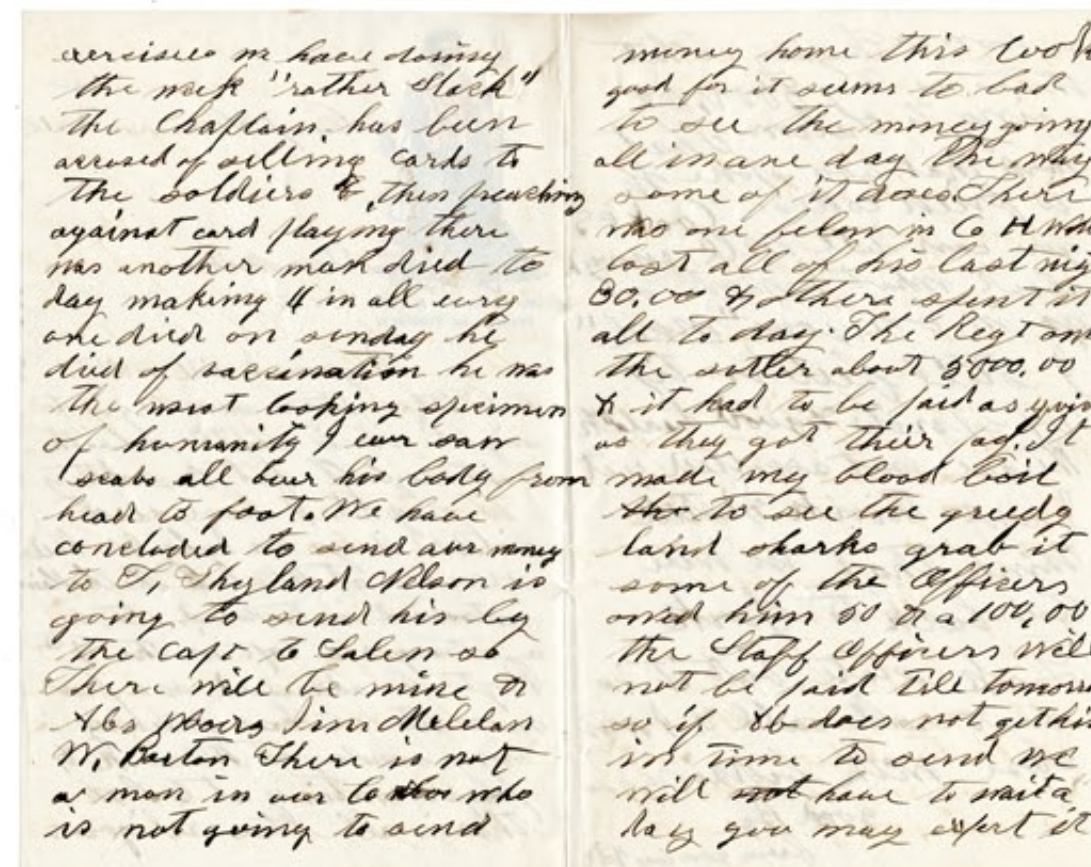 exercises we have during
the week "rather Slack"
the Chaplain has been
accused of selling cards to
the soldiers & then preaching
against card playing there
was another man died to
day making 4 in all every
one died on sunday he
died of vaccination he was
the worst looking specimen
of humanity I ever saw
scabs all over his body from
head to foot. We have
concluded to send our money
to T, Shyland Nelson is
going to send his by
the Capt to Salem so
There will be mine &
Abs Jim Mclelan
W, Barton There is not
a man in our Co who
is not going to send
money home this
good for it seems to bad
to see the money going
all in one day the way
some of it does. There
was one felow in Co H who
lost all of his last nig
30.00 & others spent it
all to day. The Regt
the sutler about 5000,00
& it had to be paid as
as they got their pay. It
made my blood boil
to see the greedy
land sharks grab it
some of the Officers
owed him 50 & a 100,00
the Staff Officers will
not be paid till
so if Ab does not get
in time to send we
will not have to wait a
day you may expect it